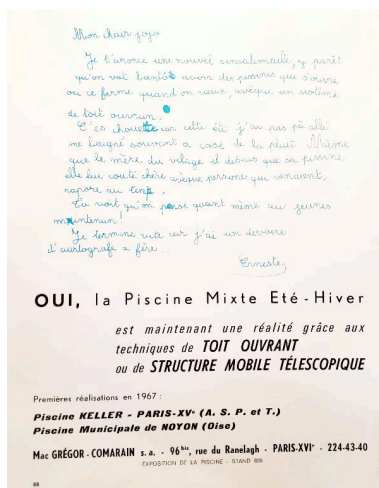 Mon chair jojo
Je t'anonce une nouvel sensationèle, y parêt
qu'on vat bientôt avoir des piscines que s'ouvre
ou ce ferme quand on veux, avèque un sistème
de toit ouvrun.
C'es chouette car cette été j'ai pas pû allé
me baigné souvant a cose de la pluit. Même
que le mère du vilage il disais que sa piscine
elle lui couté chère avèque persone que venaient,
rapore au tenp.
Tu voit qu'on panse quant même au jeunes
maintenun!
Je termine vite car j'ai un devoire
d'aurtografe a fère...
Erneste
OUI, la Piscine Mixte Eté - Hiver
est maintenant une réalité grâce aux
techniques de TOIT OUVRANT
ou de STRUCTURE MOBILE TÉLESCOPIQUE
Premières réalisations en 1967 :
Piscine KELLER - PARIS-XVe (A. S. P. et T.)
Piscine Municipale de NOYON (Oise)
Mac GRÉGOR - COMARAIN s. a. - 96 bis, rue du Ranelagh - PARIS-XVIe - 224-43-40
EXPOSITION DE LA PISCINE - STAND
88